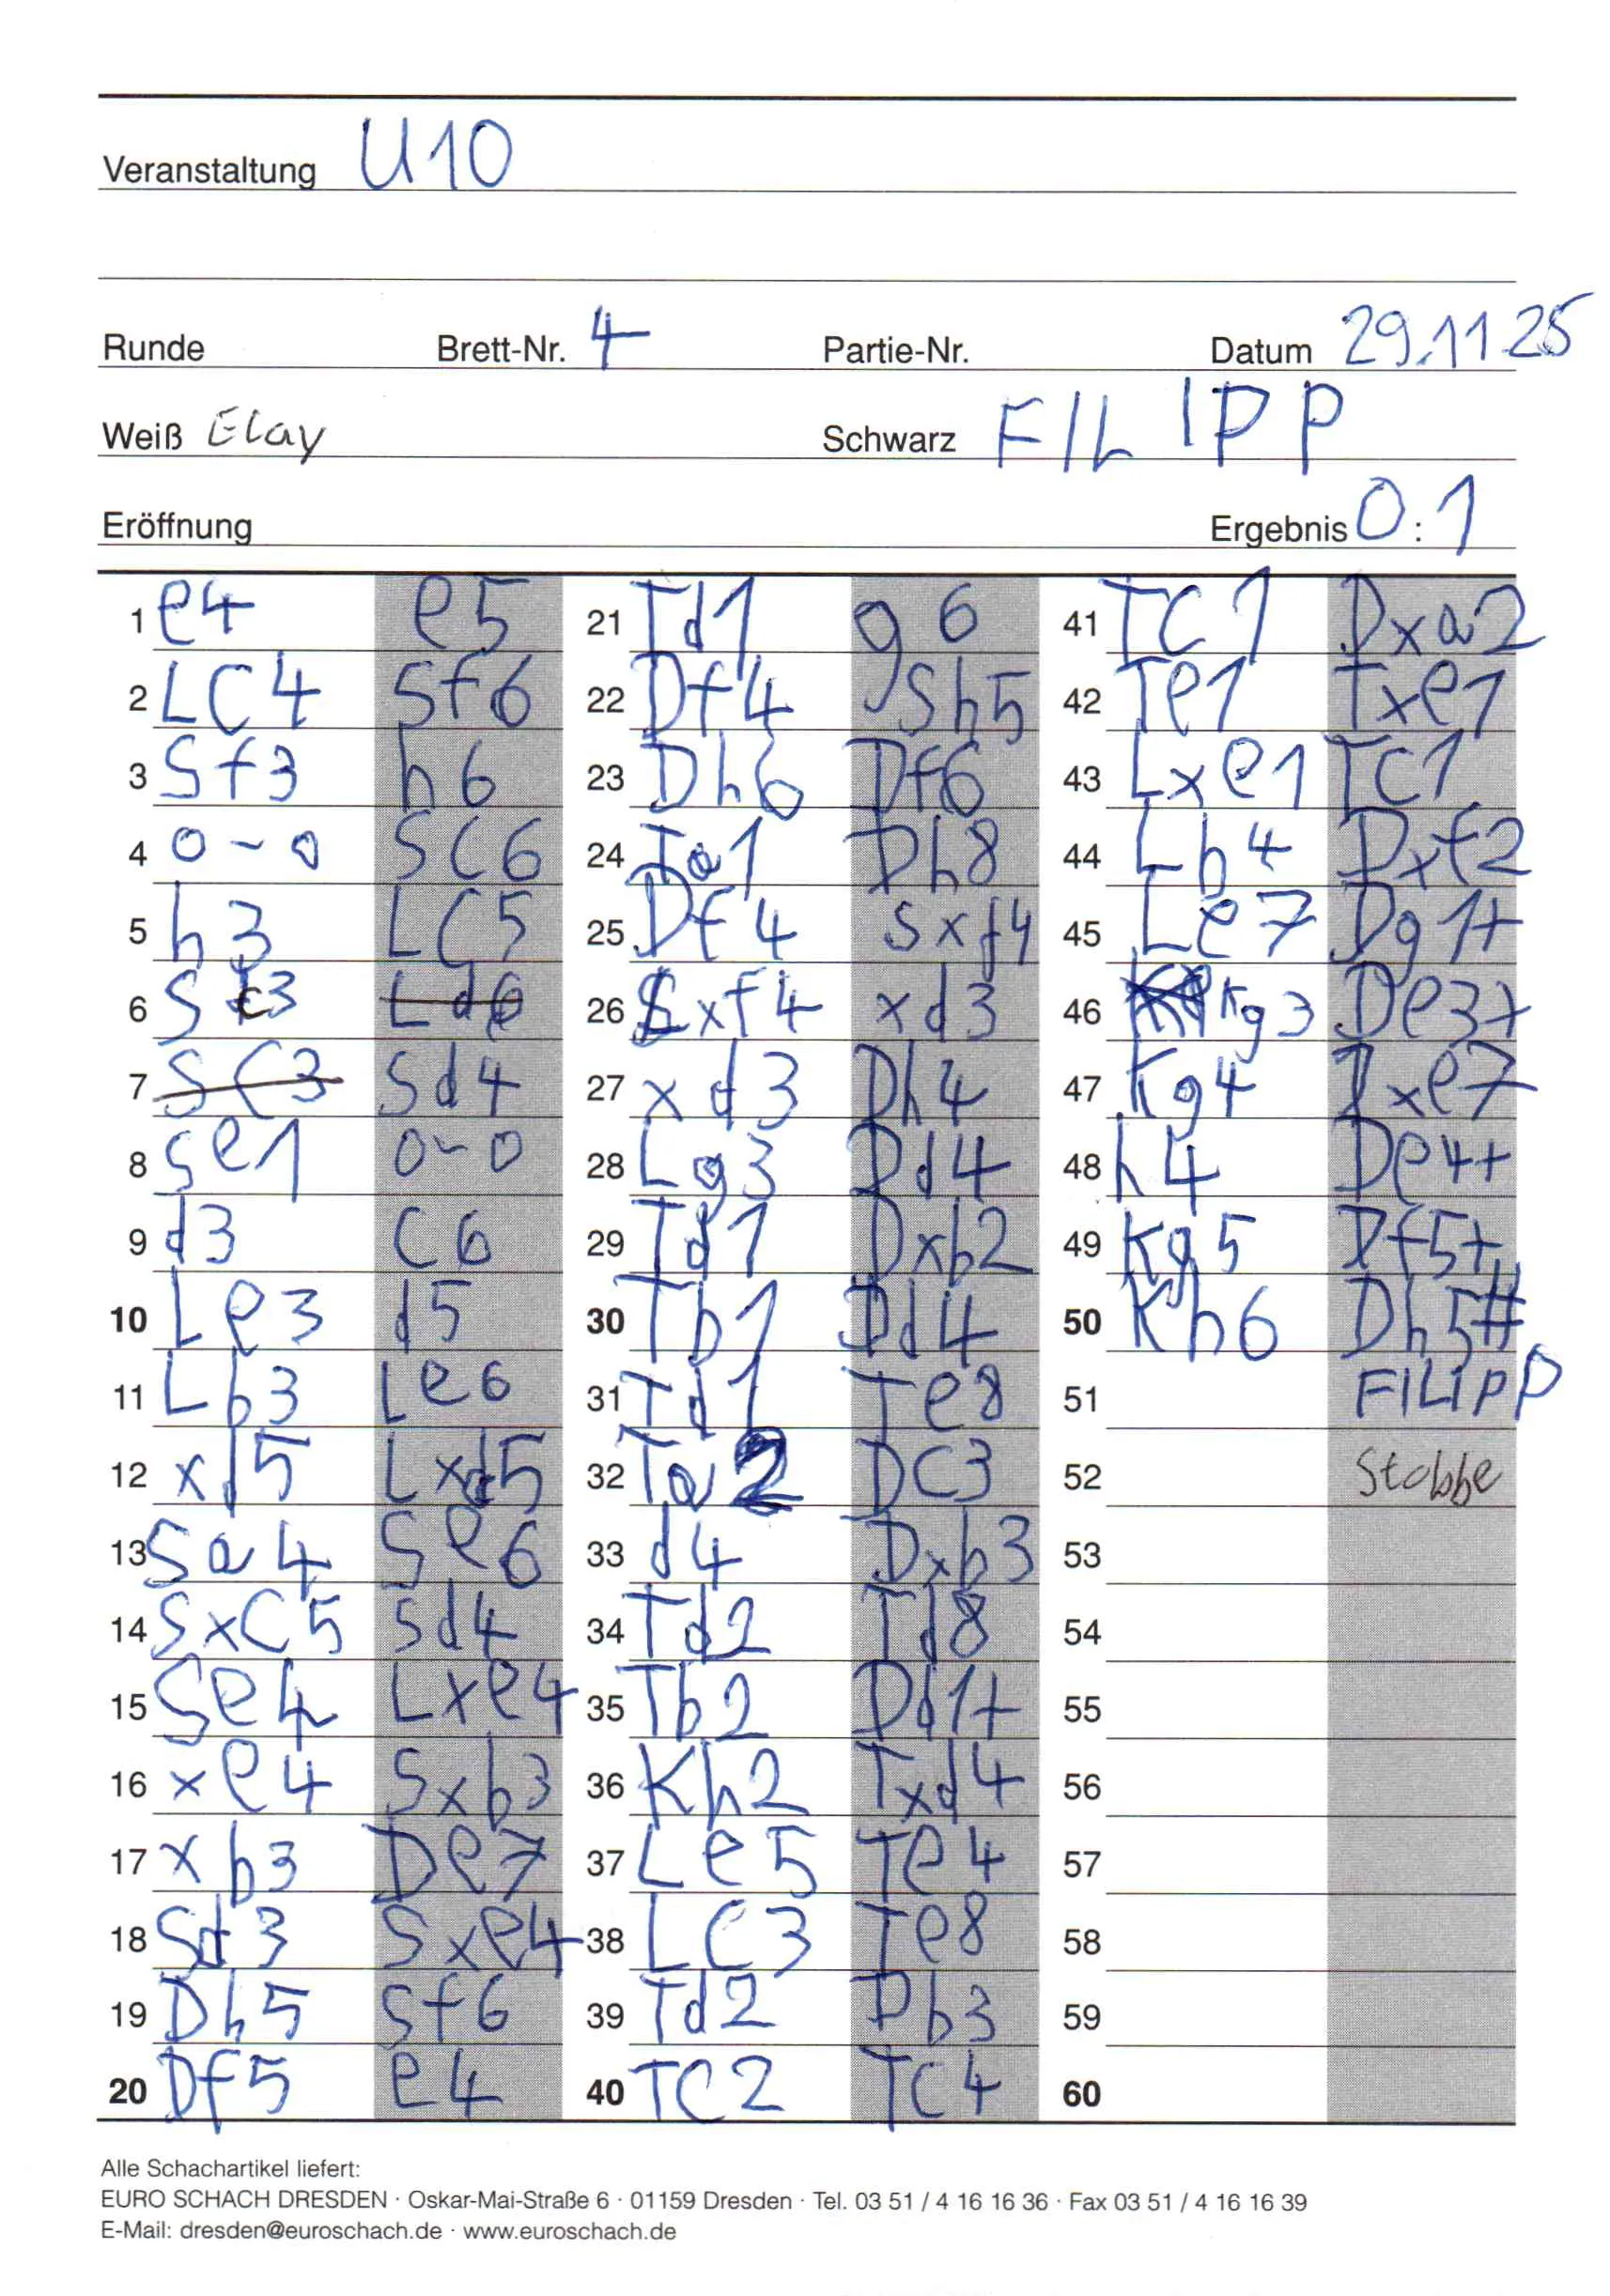 Veranstaltung U10
Runde Brett-Nr. 4 Partie-Nr. Datum 29.11.25
Weiß Elay Schwarz FILIPP
Eröffnung Ergebnis 0:1
1 e4 e5 21 Td1 g6 41 TC1 Dxa2
2 LC4 Sf6 22 Df4 Sh5 42 Te1 Txe1
3 Sf3 h6 23 Dh6 Df6 43 Lxe1 TC1
4 0-0 SC6 24 Ta1 Dh8 44 Lb4 Dxf2
5 h3 LC5 25 Df4 Sxf4 45 Le7 Dg1+
6 Sc3 Ld6 26 Lxf4 xd3 46 Kg3 De3+
7 SC3 Sd4 27 xd3 Dh4 47 Kg4 Dxe7
8 Se1 0-0 28 Lg3 Dd4 48 h4 De4+
9 d3 C6 29 Td1 Dxb2 49 Kg5 Df5+
10 Le3 d5 30 Tb1 Dd4 50 Kh6 Dh5#
11 Lb3 Le6 31 Td1 Te8 51 FILIPP
12 xd5 Lxd5 32 Ta2 DC3 52 Stobbe
13 Sa4 Se6 33 d4 Dxb3 53
14 SxC5 Sd4 34 Td2 Td8 54
15 Se4 Lxe4 35 Tb2 Dd1+ 55
16 xe4 Sxb3 36 Kh2 Txd4 56
17 xb3 De7 37 Le5 Te4 57
18 Sd3 Sxe4 38 LC3 Te8 58
19 Dh5 Sf6 39 Td2 Db3 59
20 Df5 e4 40 TC2 TC4 60
Alle Schachartikel liefert:
EURO SCHACH DRESDEN · Oskar-Mai-Straße 6 · 01159 Dresden · Tel. 03 51 / 4 16 16 36 · Fax 03 51 / 4 16 16 39
E-Mail: dresden@euroschach.de · www.euroschach.de